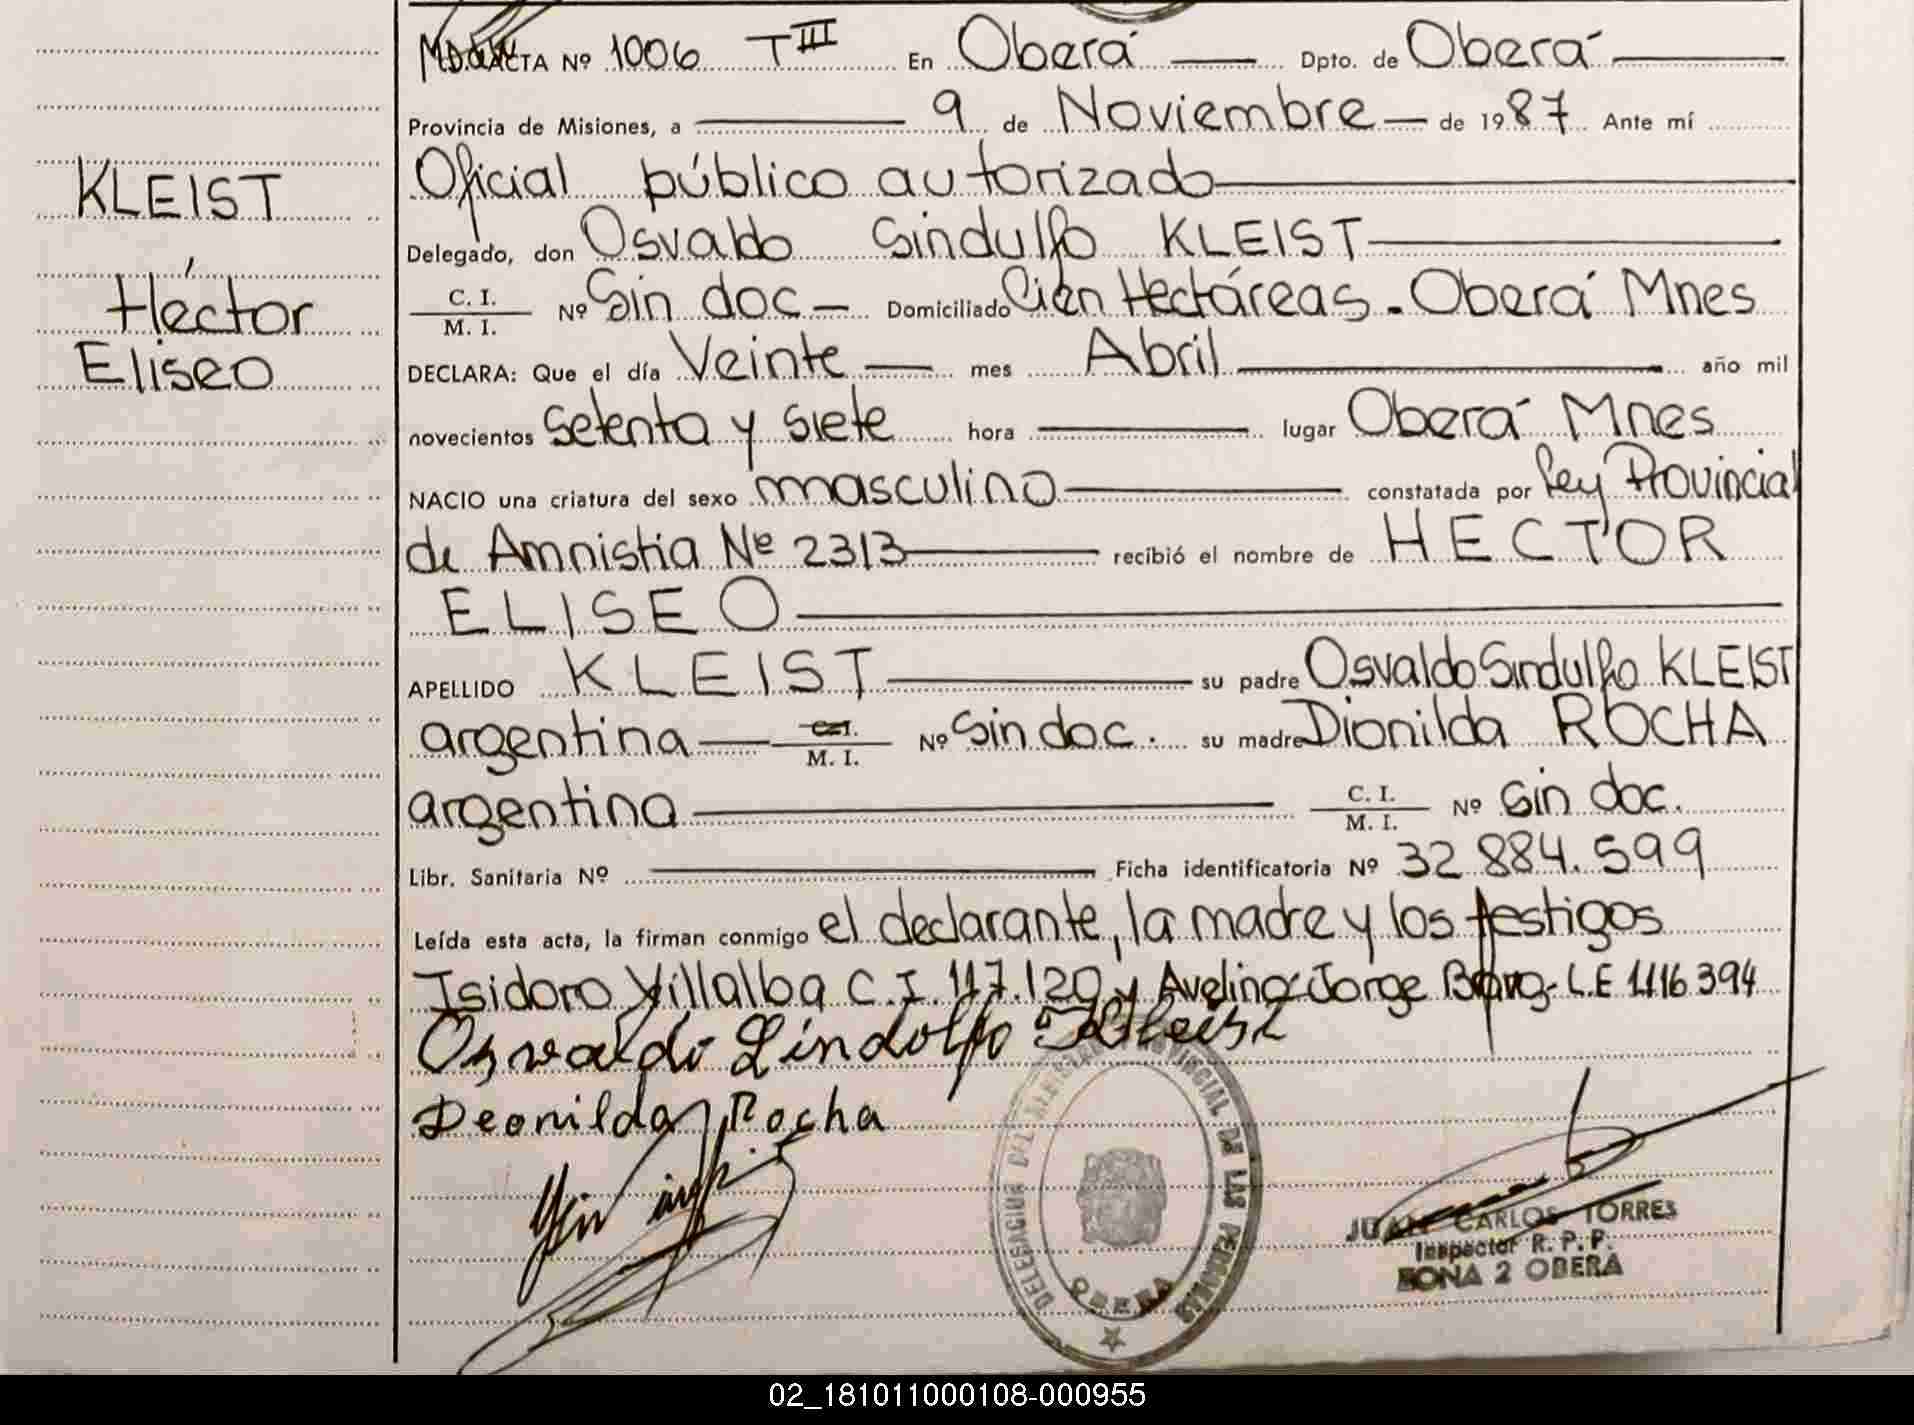 KLEIST
Héctor
Eliseo
ACTA Nº 1006 TIII En Oberá Dpto. de Oberá
Provincia de Misiones, a 9 de Noviembre de 1987 Ante mí
Oficial público autorizado
Delegado, don Osvaldo Sindulfo KLEIST
C. I.
M. I. Nº Sin doc Domiciliado Cien Hectáreas - Oberá Mnes
DECLARA: Que el día Veinte mes Abril año mil
novecientos Setenta y siete hora lugar Oberá Mnes
NACIO una criatura del sexo masculino constatada por Ley Provincial
de Amnistia Nº 2313 recibió el nombre de HECTOR
ELISEO
APELLIDO KLEIST su padre Osvaldo Sindulfo KLEIST
argentina C.I. M. I. Nº Sin doc. su madre Dionilda ROCHA
argentina C. I. M. I. Nº Sin doc.
Libr. Sanitaria Nº Ficha identificatoria Nº 32.884.599
Leída esta acta, la firman conmigo el declarante, la madre y los testigos
Isidoro Villalba C.I. 117.120 y Avelino Jorge L.E 1116394
Osvaldo Sindolfo Kleist
Deonilda Rocha
DELEGACION DEL REGISTRO PROVINCIAL DE LAS PERSONAS
OBERA
JUAN CARLOS TORRES
Inspector R. P. P.
ZONA 2 OBERA
02_181011000108-000955